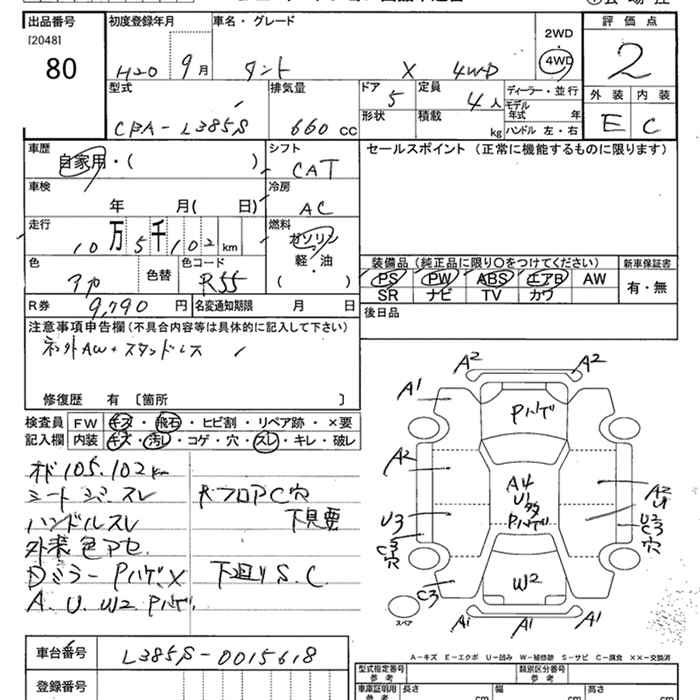 出品番号
[2048]
80
初度登録年月
H20 9月
車名・グレード
タント X 4WD
2WD
4WD
評価点
2
型式
CBA-L385S
排気量
660 cc
ドア
5
形状
定員
4人
積載
kg
ディーラー・並行
モデル年式 年
ハンドル 左・右
外装 内装
E C
車歴
自家用・( )
車検
年 月( 日)
走行
10万5千102 km
色
アカ
色替
色コード
R55
R券 9,790 円
名変通知期限 月 日
シフト
CAT
冷房
AC
燃料
ガソリン
軽・油
( )
セールスポイント (正常に機能するものに限ります)
装備品 (純正品に限り〇をつけてください)
PS PW ABS エアB AW
SR ナビ TV カワ
新車保証書
有・無
後日品
注意事項申告欄(不具合内容等は具体的に記入して下さい)
社外AW・スタッドレス
修復歴 有 [箇所 ]
検査員記入欄
FW キズ・飛石・ヒビ割・リペア跡・×要
内装 キズ・汚レ・コゲ・穴・スレ・キレ・破レ
105,102km
スレ
ハンドルスレ
外装色アセ
Dミラー Pハゲ X
A. U. W2 Pハゲ
RフロアC穴
下見要
下廻りS.C
A2 A2
A1
Pハゲ
A2
A4
U1
Pハゲ
A2
U1
U3
C3
穴
U2
C3
穴
C3
W2
A1 A1 A1
スペア
A-キズ E-エクボ U-凹み W-補修跡 S-サビ C-腐食 ××-交換済
車台番号
L385S-0015618
登録番号
型式指定番号
参考
類別区分番号
参考
車庫証明用
参考
長さ cm
幅 cm
高さ cm